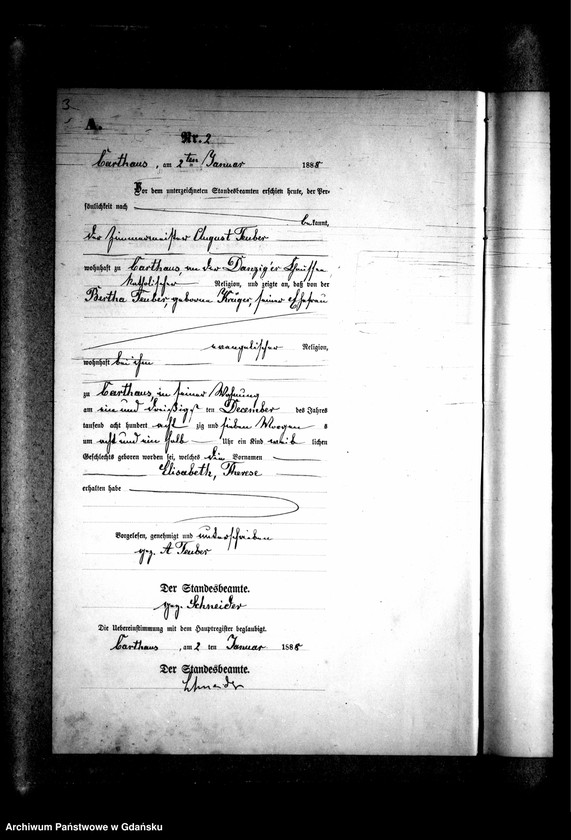 3
A.
Nr. 2
Carthaus, am 2ten Januar 1888
Vor dem unterzeichneten Standesbeamten erschien heute, der Per-
sönlichkeit nach
bekannt,
der Zimmermeister August Teuber
wohnhaft zu Carthaus, an der Danziger Chaussee
katholischer Religion, und zeigte an, daß von der
Bertha Teuber, geborene Krüger, seiner Ehefrau
evangelischer Religion,
wohnhaft bei ihm
zu Carthaus, in seiner Wohnung
am ein und dreißigsten December des Jahres
tausend acht hundert acht zig und sieben Morgens
um acht und ein halb Uhr ein Kind weib lichen
Geschlechts geboren worden sei, welches die Vornamen
Elisabeth, Therese
erhalten habe
Vorgelesen, genehmigt und unterschrieben
gez. A Teuber
Der Standesbeamte.
gez. Schneider
Die Uebereinstimmung mit dem Hauptregister beglaubigt.
Carthaus, am 2 ten Januar 1888
Der Standesbeamte.
Schneider
Archiwum Państwowe w Gdańsku